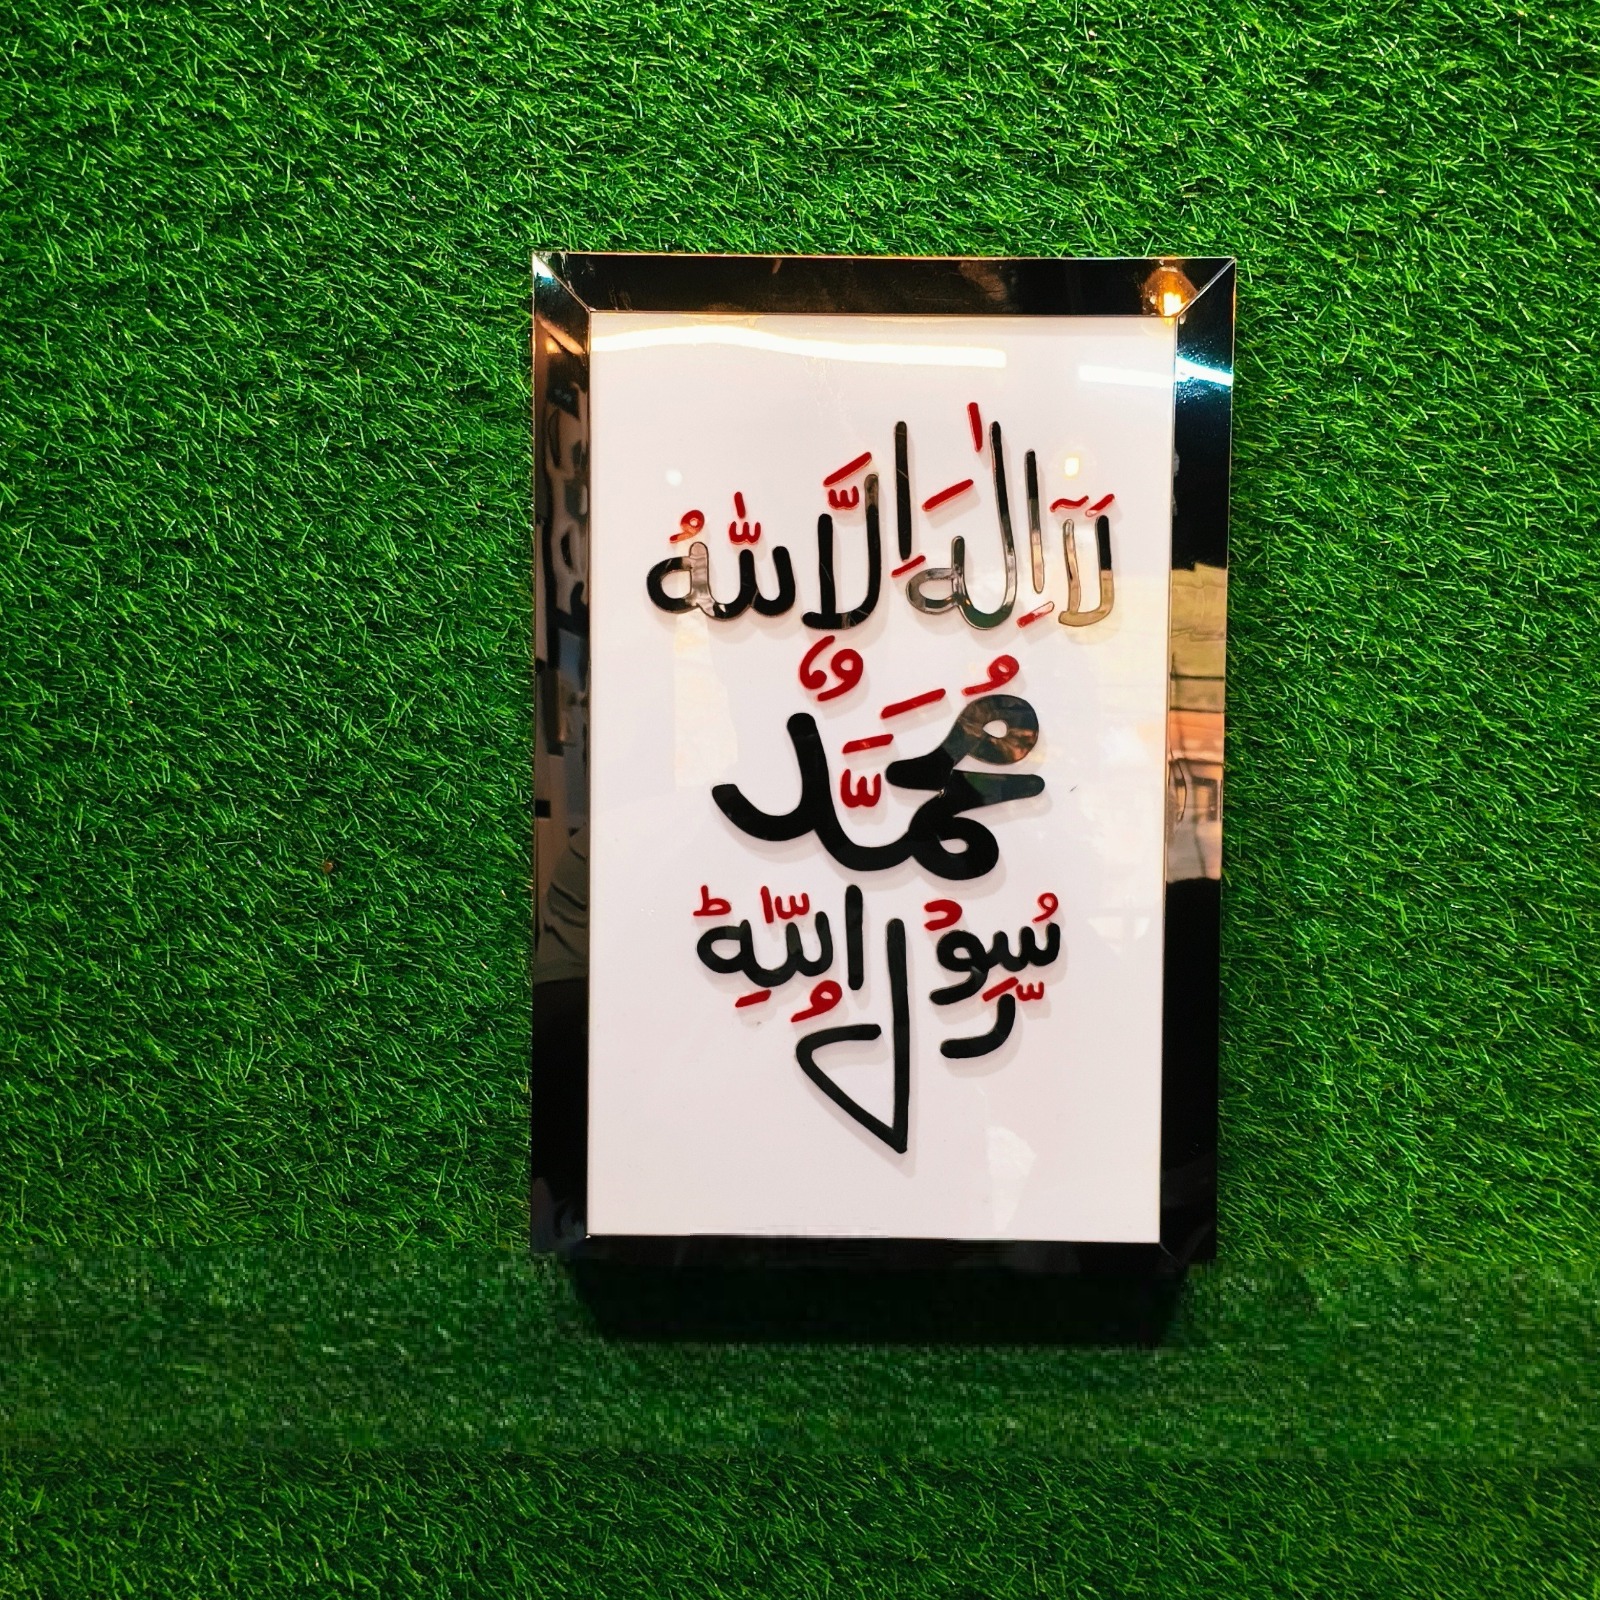 لَآ اِلٰهَ اِلَّا اللّٰهُ
مُحَمَّدٌ
رَّسُوْلُ اللّٰهِؕ